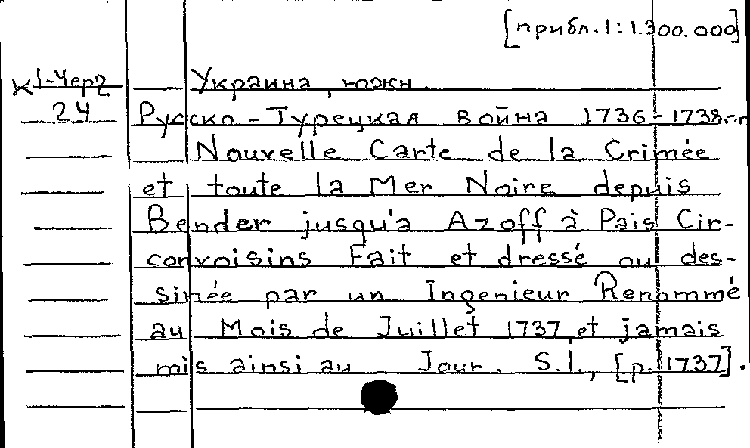 [прибл. 1:1.300.000]
К 1-Черг Украина, южн.
24 Русско-Турецкая война 1736-1738 г.г.
Nouvelle Carte de la Crimée
et toute la Mer Noire depuis
Bender jusqu'a Azoff à Pais Cir-
convoisins Fait et dressé ou des-
sinée par un Ingenieur Renommé
au Mois de Juillet 1737 et jamais
mis ainsi au Jour. S.l., [p. 1737].